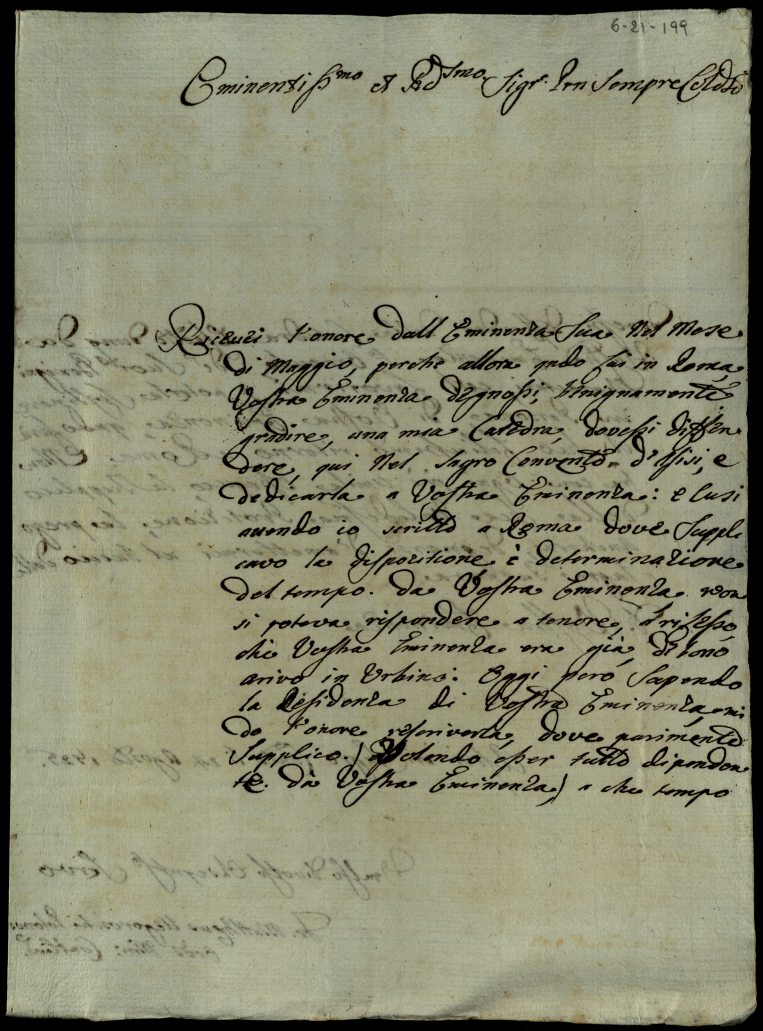 6-21-199
Eminentiss.mo et Rd.smo Sigr. Prn Sempre Coldo
Riceuei l'onore dall Eminenza Sua Nel Mese
di Maggio, perche allora qndo fui in Roma,
Vostra Eminenza degnossi, benignamente
gradire, una mia Catedra, dovessi diffen
dere, qui Nel Sagro Convento d'Asisi, e
dedicarla a Vostra Eminenza: e cusi
auendo io scritto a Roma dove suppli
cavo la dispozitione è determinazione
del tempo. da Vostra Eminenza non
si poteva rispondere a tenore, à riflesso,
che Vostra Eminenza era già, di buono
arivo in Urbino: Oggi però sapendo
la Residenza di Vostra Eminenza, mi
do l'onore rescriverla, dove parimente
Supplico. (Volendo esser tutto dipenden
te. dà Vostra Eminenza) a che tempo